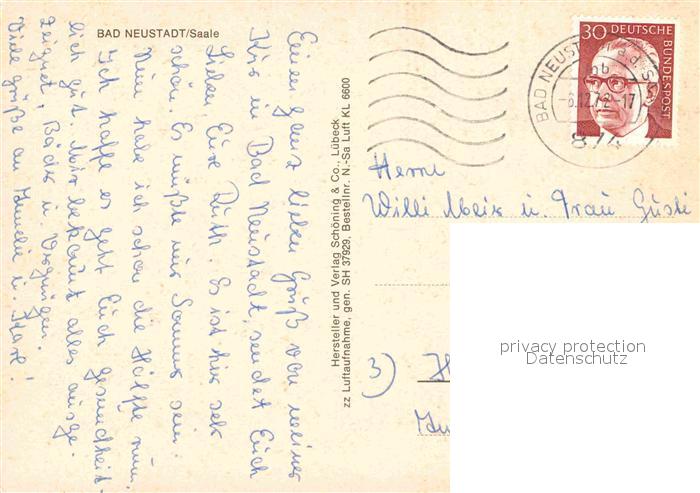 BAD NEUSTADT/Saale
Einen ganz lieben Gruß von meiner
Kur in Bad Neustadt, sendet Euch
Lieben, Eure Ruth. Es ist hier sehr
schön. Es müßte nur Sommer sein.
Nun habe ich schon die Hälfte rum.
Ich hoffe es geht Euch gesundheit-
lich gut. Mir bekommt alles ausge-
zeignet, Bäder u. Vergnügen.
Viele Grüße an u.
Hersteller und Verlag Schöning & Co., Lübeck
zz Luftaufnahme, gen. SH 37929, Bestellnr. N.-Sa Luft KL 6600
30 DEUTSCHE BUNDESPOST
BAD NEUSTADT a.d. SAALE
bb
-6.12.72-17
874
Herrn
Willi Meix u. Frau Gusti
3)
privacy protection
Datenschutz